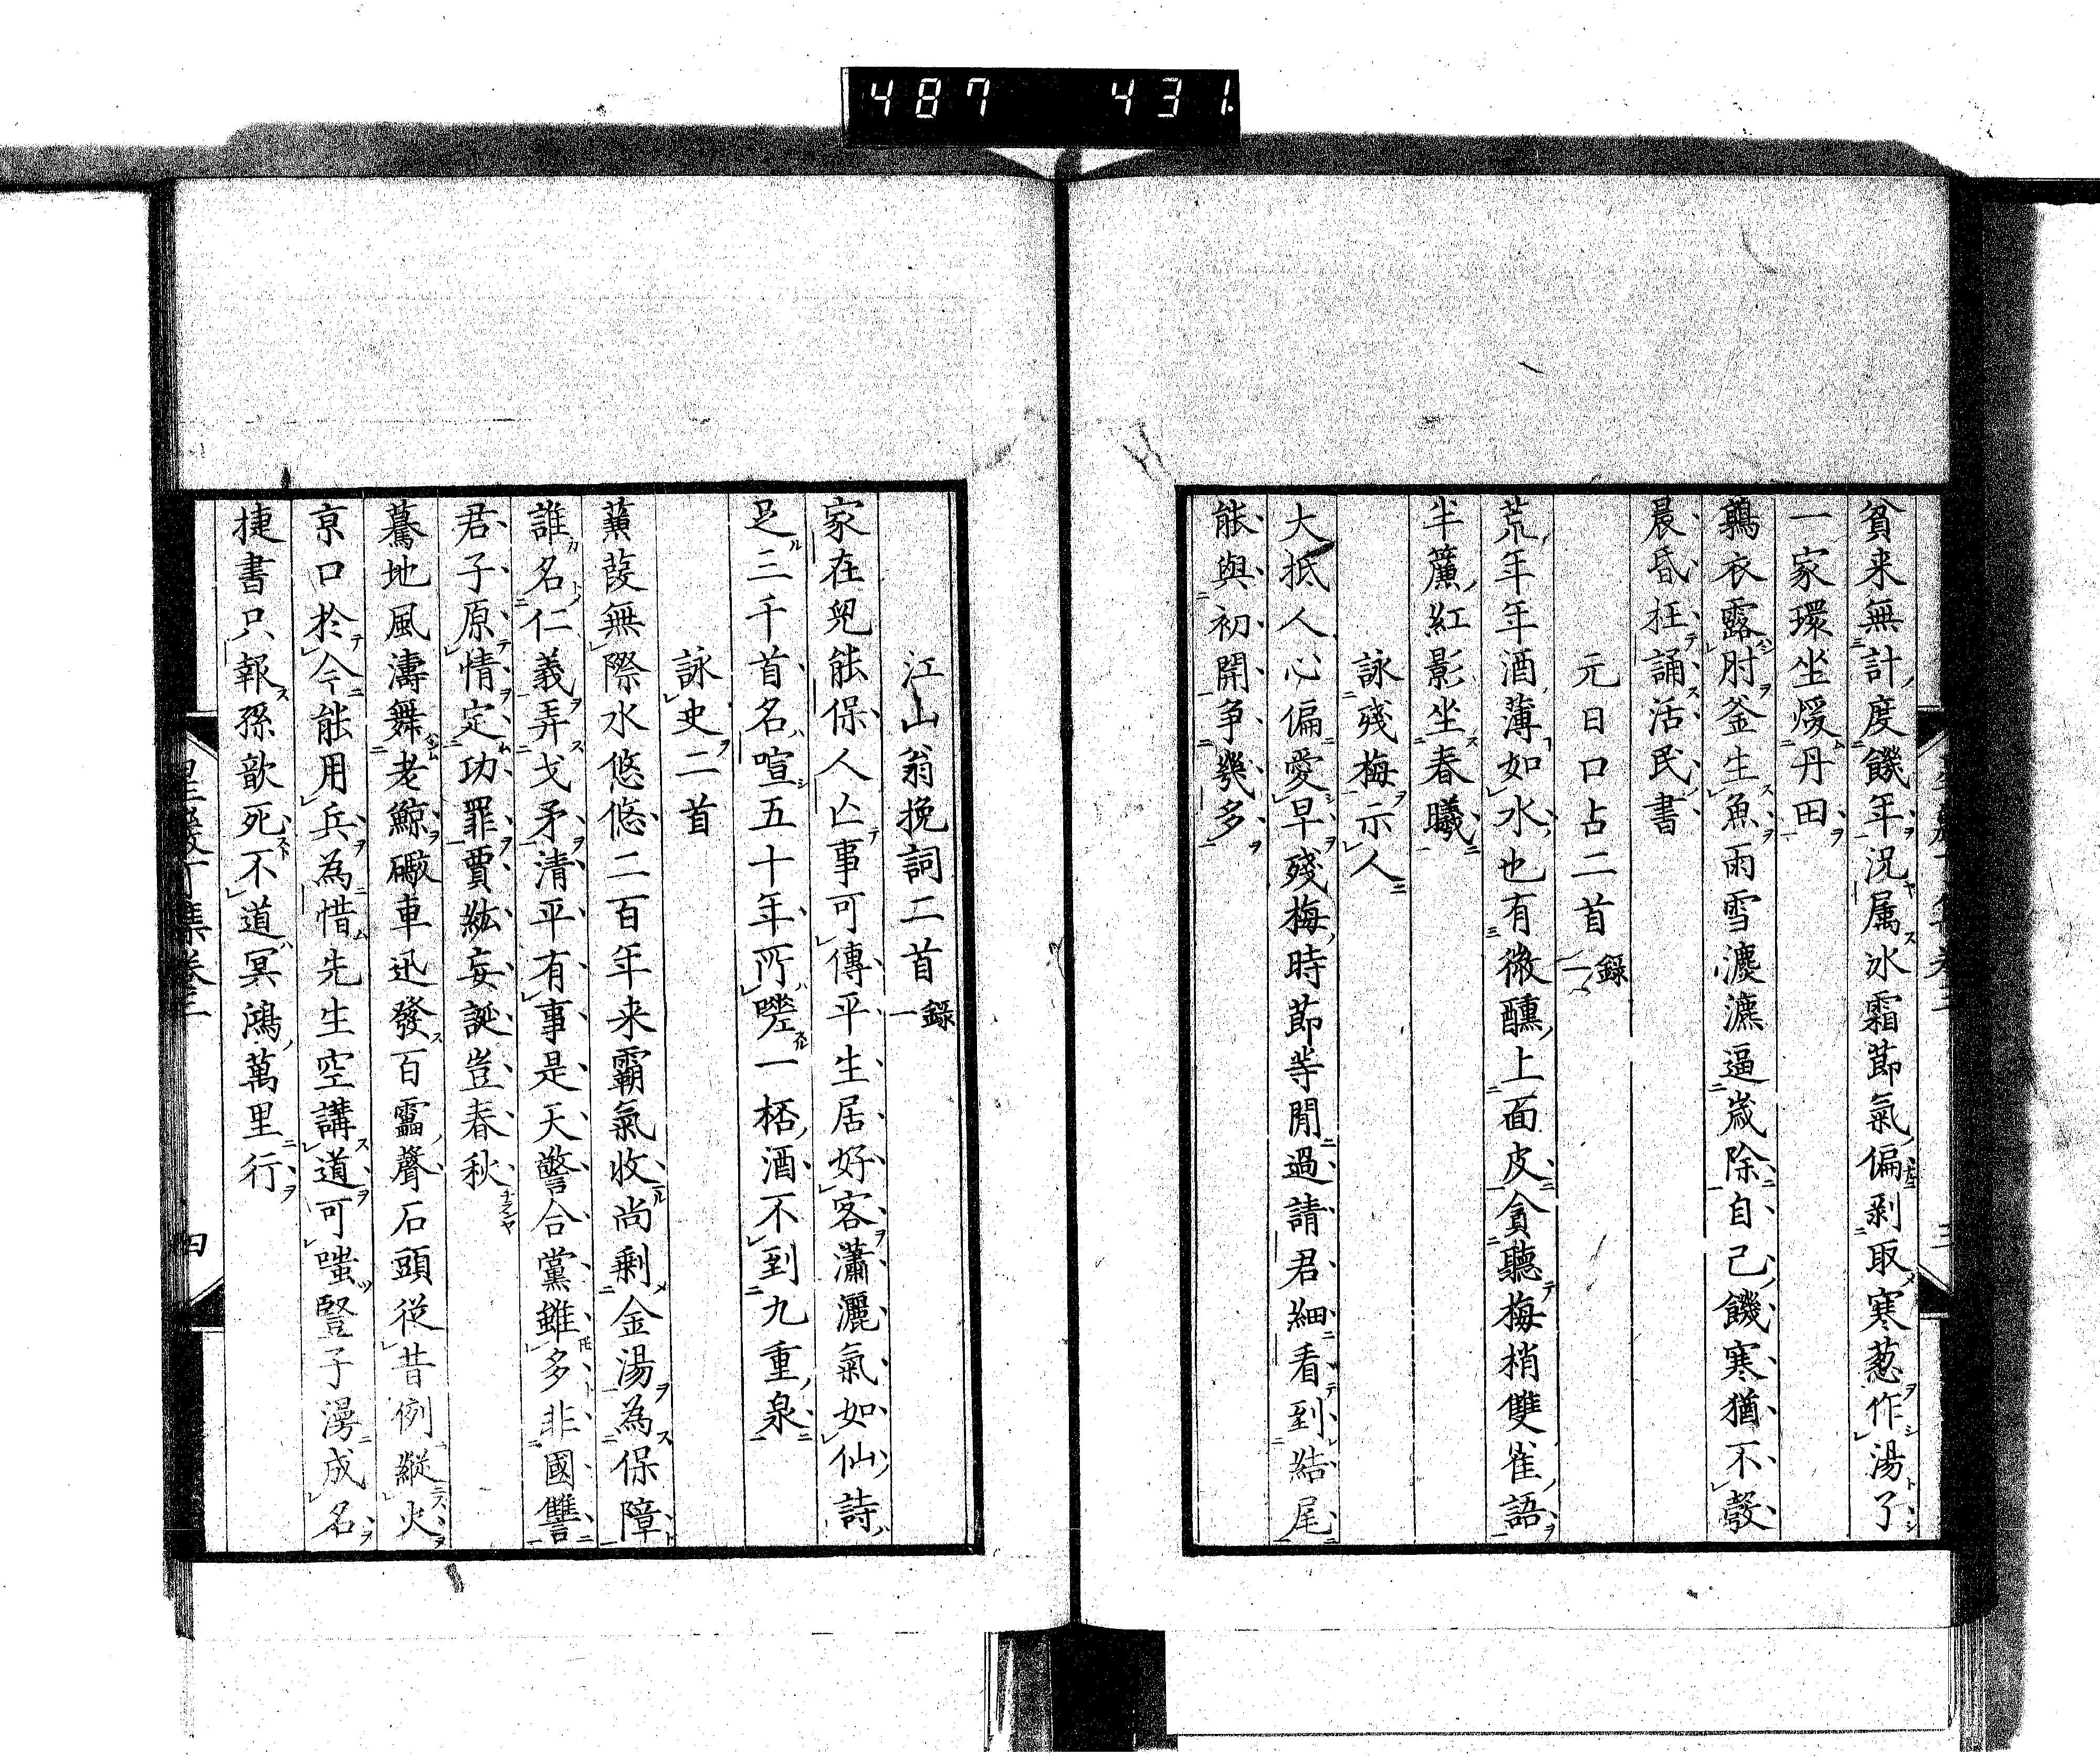 487 431
貧来無計度饑年況属氷霜節氣偏剥取寒葱作湯了
一家環坐煖丹田
鶉衣露肘釜生魚雨雪瀌瀌逼歳除自己饑寒猶不彀
晨昏枉誦活民書
元日口占二首録一
荒年年酒薄如水也有微醺上面皮貪聽梅梢雙雀語
半簾紅影坐春曦
詠殘梅示人
大抵人心偏愛早殘梅時節等閒過請君細看到結尾
能與初開争幾多
江山翁挽詞二首録一
家在兒能保人亡事可傳平生居好客瀟灑氣如仙詩
足三千首名喧五十年所嗟一桮酒不到九重泉
詠史二首
蒹葭無際水悠悠二百年来霸氣收尚剩金湯為保障
誰名仁義弄戈矛清平有事是天警合黨雖多非國讐
君子原情定功罪賈紘妄誕豈春秋
驀地風濤舞老鯨礮車迅發百靁聲石頭従昔例縦火
京口於今能用兵為惜先生空講道可嗤豎子漫成名
捷書只報孫歆死不道冥鴻萬里行
四